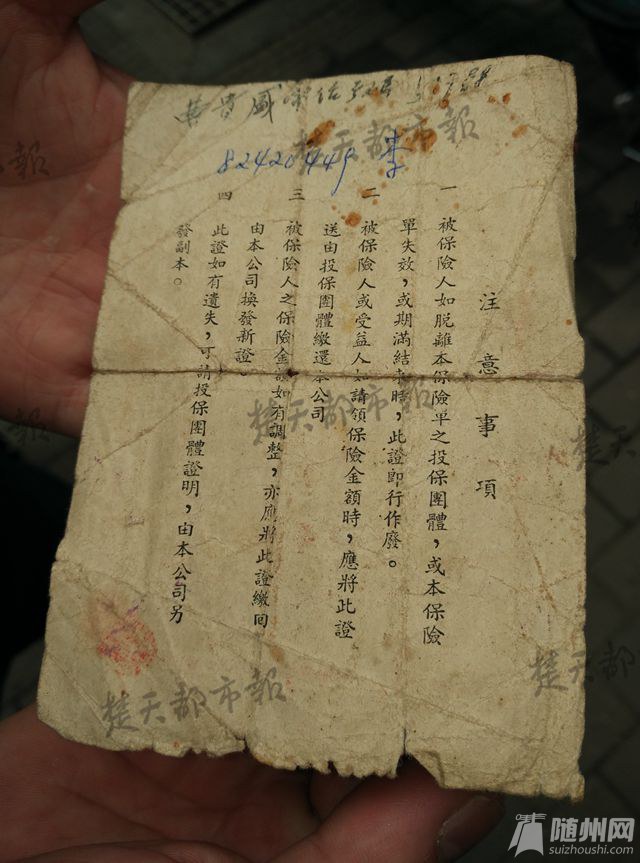 82420449 李
注意事項
一 被保險人如脫離本保險單之投保團體，或本保險
單失效，或期滿結束時，此證即行作廢。
二 被保險人或受益人如請領保險金額時，應將此證
送由投保團體繳還本公司
三 被保險人之保險金額如有調整，亦應將此證繳回
由本公司換發新證。
四 此證如有遺失，可請投保團體證明，由本公司另
發副本。
楚天都市報
楚天都市報
楚天都市報
楚天都市報
随州网
suizhoushi.com